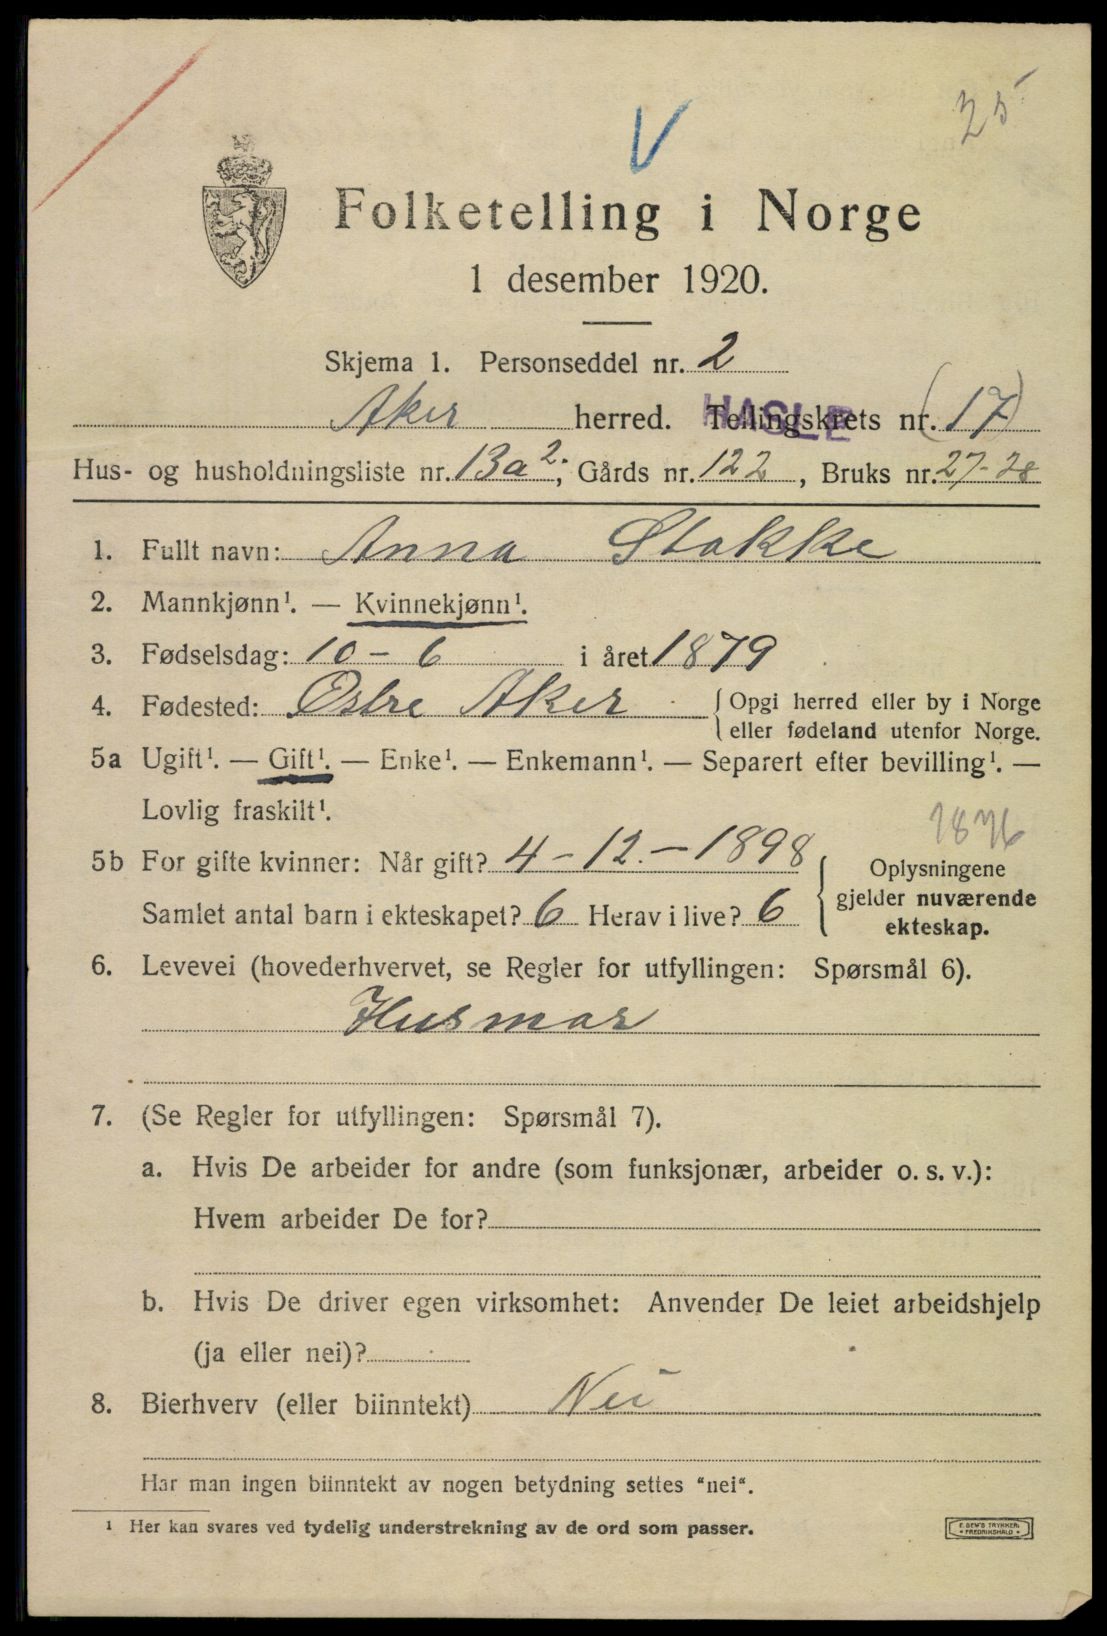 25
V
Folketelling i Norge
1 desember 1920.
Skjema 1. Personseddel nr. 2
Aker herred. Tellingskrets nr. (17)
HASLE
Hus- og husholdningsliste nr. 13a2; Gårds nr. 122, Bruks nr. 27-28
1. Fullt navn: Anna Stokke
2. Mannkjønn¹. — Kvinnekjønn¹.
3. Fødselsdag: 10 - 6 i året 1879
4. Fødested: Østre Aker {Opgi herred eller by i Norge
eller fødeland utenfor Norge.
5a Ugift¹. — Gift¹. — Enke¹. — Enkemann¹. — Separert efter bevilling¹. —
Lovlig fraskilt¹.
5b For gifte kvinner: Når gift? 4 - 12. - 1898
Samlet antal barn i ekteskapet? 6 Herav i live? 6
{Oplysningene
gjelder nuværende
ekteskap.
6. Levevei (hovederhvervet, se Regler for utfyllingen: Spørsmål 6).
Husmor
7. (Se Regler for utfyllingen: Spørsmål 7).
a. Hvis De arbeider for andre (som funksjonær, arbeider o. s. v.):
Hvem arbeider De for?
b. Hvis De driver egen virksomhet: Anvender De leiet arbeidshjelp
(ja eller nei)?
8. Bierhverv (eller biinntekt) Nei
Har man ingen biinntekt av nogen betydning settes "nei".
¹ Her kan svares ved tydelig understrekning av de ord som passer.